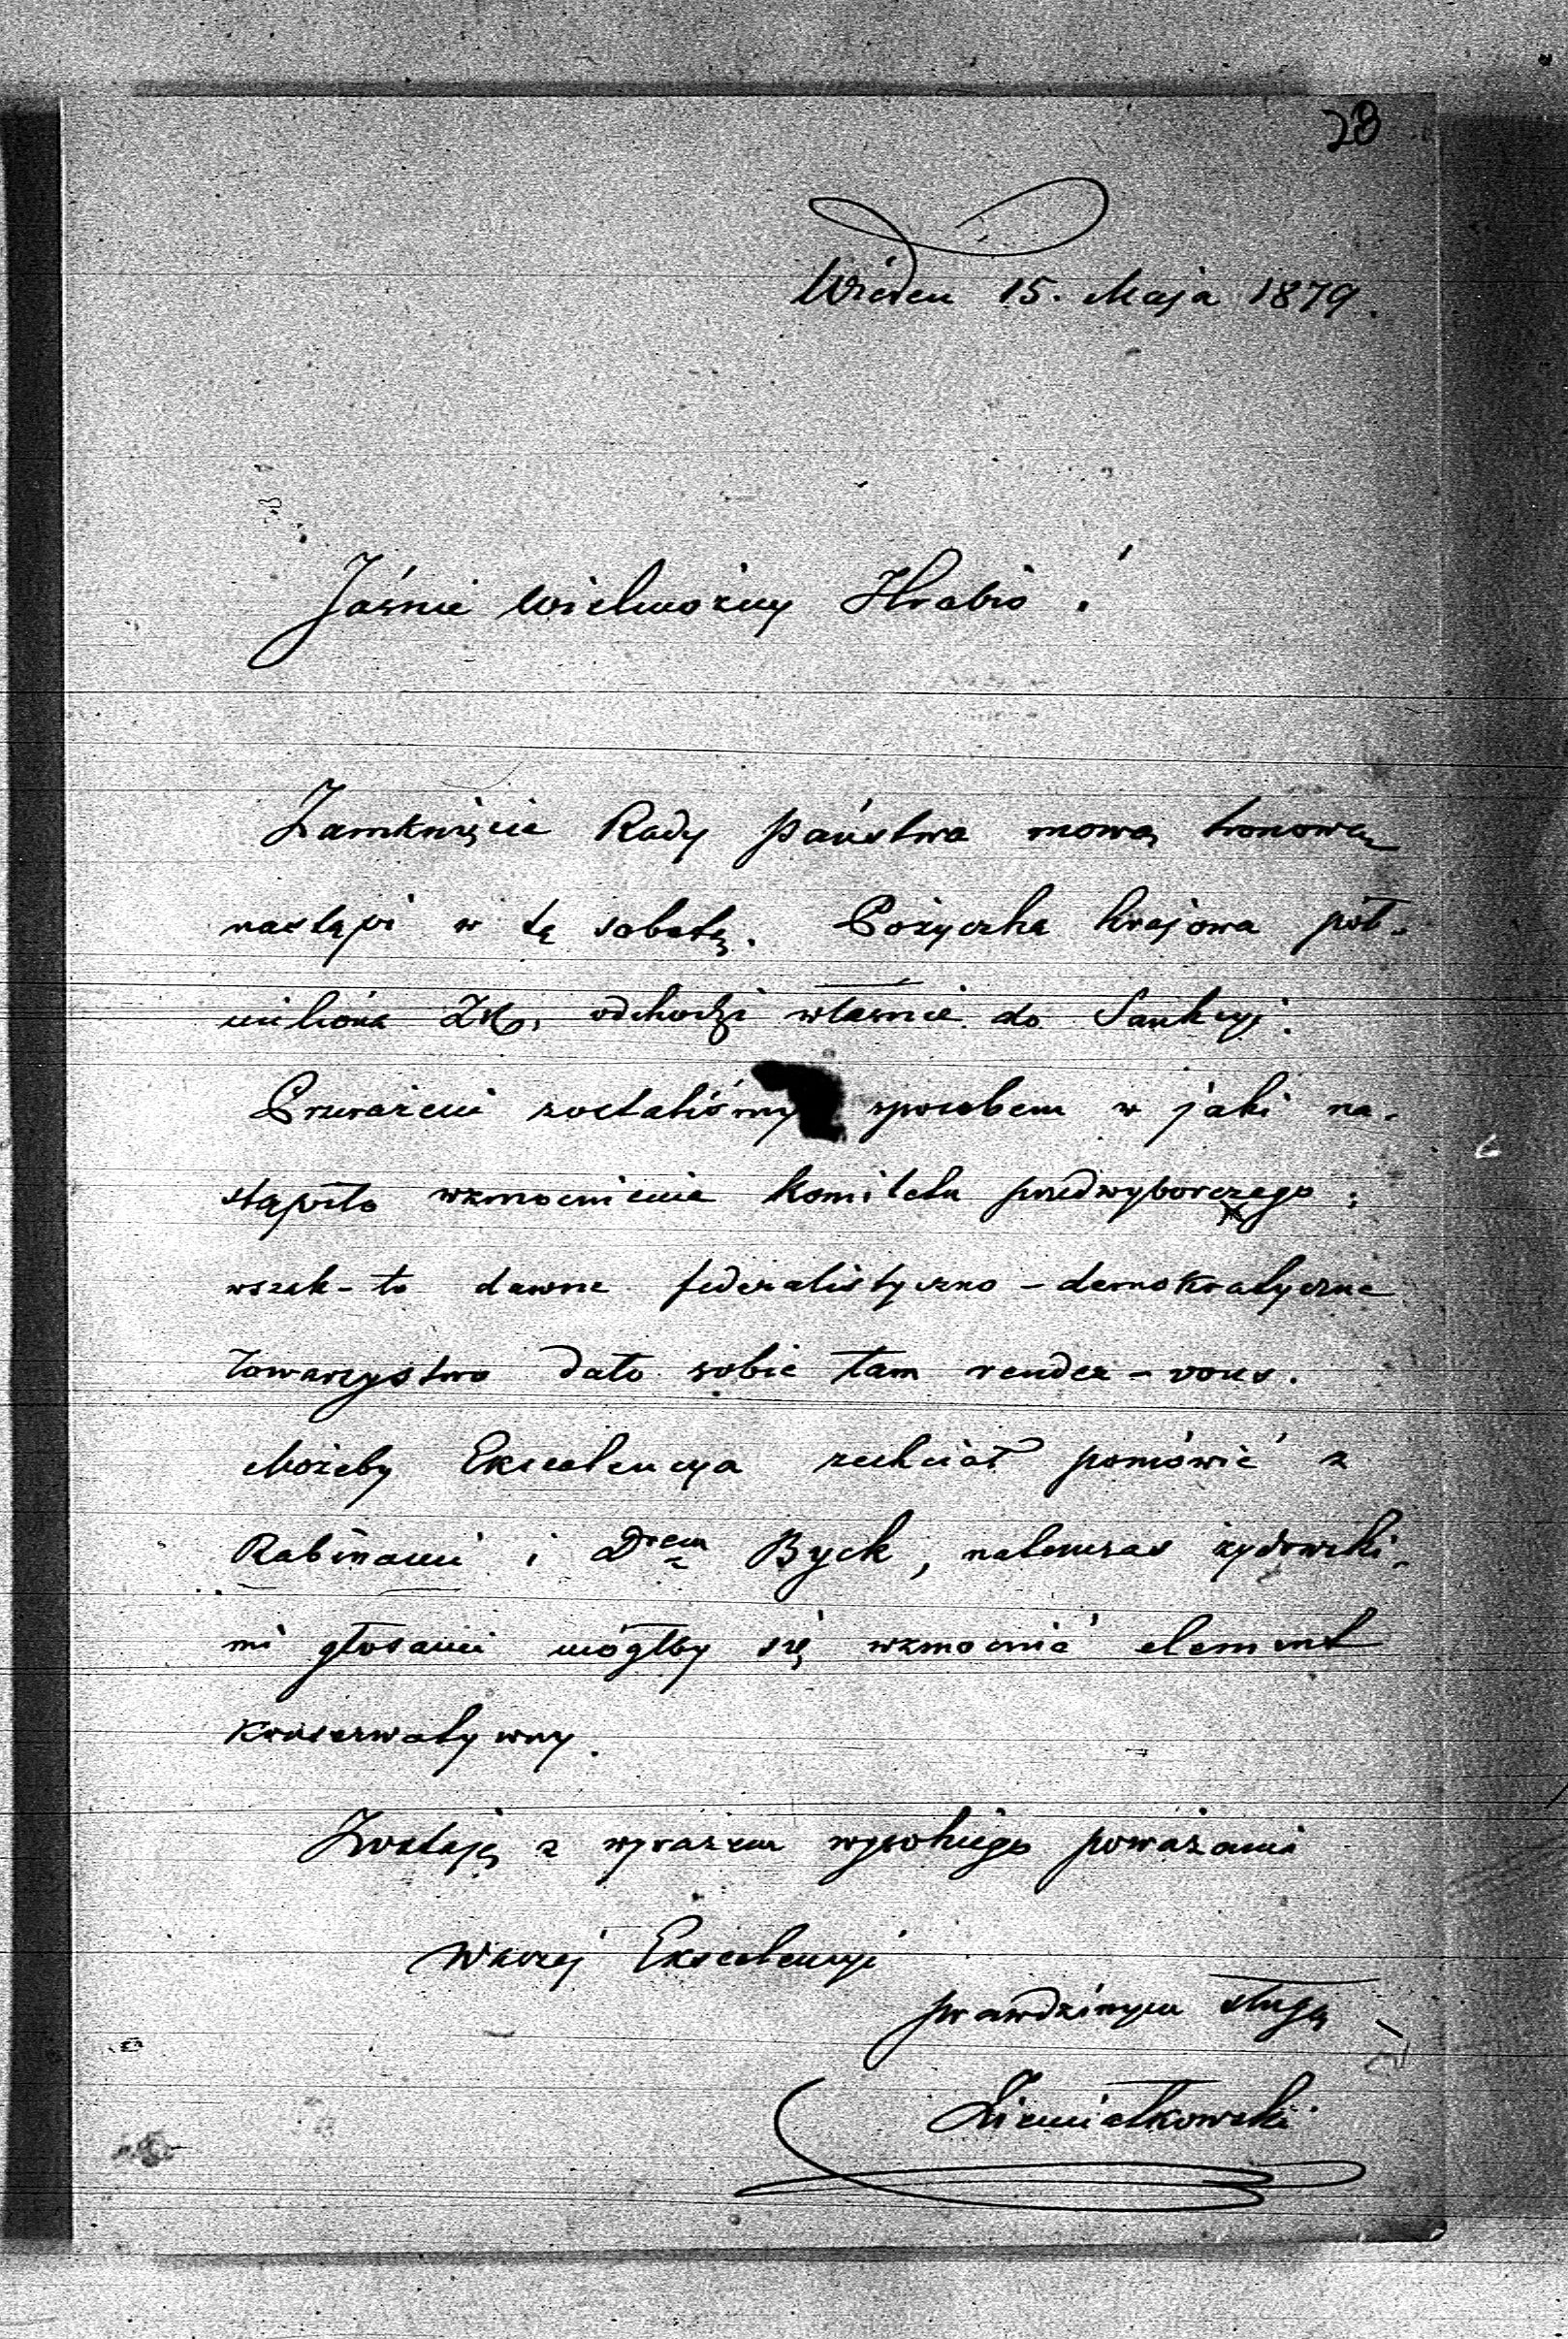 28
Wiedeń 15. Maja 1879.
Jaśnie Wielmożny Hrabio!
Zamknięcie Rady państwa mową tronową
nastąpi w tę sobotę. Pożyczka krajowa pół-
miliona Zł, odchodzi właśnie do Sankcyi.
Przerażeni zostaliśmy sposobem w jaki na-
stąpiło wzmocnienie komitetu przedwyborczego;
wszak-to dawne federalistyczno-demokratyczne
towarzystwo dało sobie tam rendez-vous.
Możeby Ekscelencya zechciał pomówić z
Rabinami i Drem Byck, natenczas żydowski-
mi głosami mógłby się wzmocnić element
konserwatywny.
Zostaję z wyrazem wysokiego poważania
Waszej Ekscelencyi
prawdziwym sługą
Ziemiałkowski